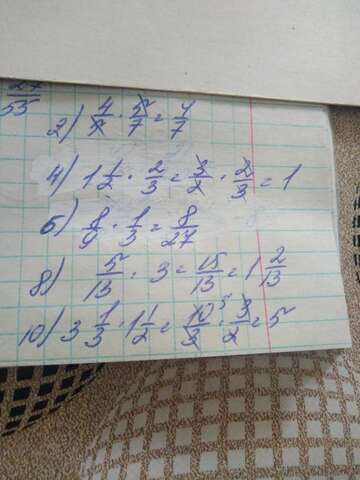 27/55
2) 4/5 · 5/7 = 4/7
4) 1 1/2 · 2/3 = 3/2 · 2/3 = 1
6) 8/9 · 1/3 = 8/27
8) 5/13 · 3 = 15/13 = 1 2/13
10) 3 1/3 · 1 1/2 = 10 5/3 · 3/2 = 5